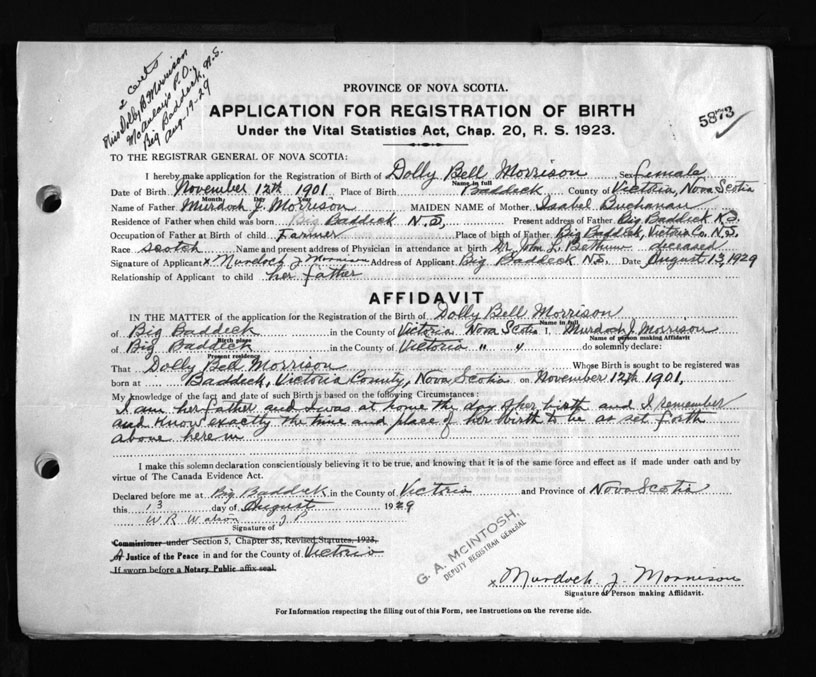 2 Certs
Miss Dolly B Morrison
McAulay's P.O.
Big Baddeck, N.S.
Aug-19-29
5873
PROVINCE OF NOVA SCOTIA.
APPLICATION FOR REGISTRATION OF BIRTH
Under the Vital Statistics Act, Chap. 20, R. S. 1923.
TO THE REGISTRAR GENERAL OF NOVA SCOTIA:
I hereby make application for the Registration of Birth of Dolly Bell Morrison Sex female
Name in full
Date of Birth November 12th 1901 Place of Birth Baddeck County of Victoria, Nova Scotia
Month Day Year
Name of Father Murdoch J. Morrison MAIDEN NAME of Mother Isabel Buchanan
Residence of Father when child was born Big Baddeck N.S, Present address of Father Big Baddeck N.S.
Occupation of Father at Birth of child Farmer Place of birth of Father Big Baddeck, Victoria Co. N.S.
Race Scotch Name and present address of Physician in attendance at birth Dr. John L. Bethune deceased
Signature of Applicant x Murdoch J Morrison Address of Applicant Big Baddeck N.S. Date August 13, 1929
Relationship of Applicant to child her father
AFFIDAVIT
IN THE MATTER of the application for the Registration of the Birth of Dolly Bell Morrison
Name in full
of Big Baddeck in the County of Victoria Nova Scotia I, Murdoch J. Morrison
Birth place Name of person making Affidavit
of Big Baddeck in the County of Victoria " " do solemnly declare:
Present residence
That Dolly Bell Morrison Whose Birth is sought to be registered was
born at Baddeck, Victoria County, Nova Scotia on November 12th 1901,
My knowledge of the fact and date of such Birth is based on the following Circumstances:
I am her father and I was at home the day of her birth and I remember
and know exactly the time and place of her birth to be as set forth
above herein
I make this solemn declaration conscientiously believing it to be true, and knowing that it is of the same force and effect as if made under oath and by
virtue of The Canada Evidence Act.
Declared before me at Big Baddeck in the County of Victoria and Province of Nova Scotia
this 13 day of August 1929
W R Watson J.P
Signature of
Commissioner under Section 5, Chapter 38, Revised Statutes, 1923,
A Justice of the Peace in and for the County of Victoria
If sworn before a Notary Public affix seal.
G. A. McINTOSH,
DEPUTY REGISTRAR GENERAL
x Murdoch J. Morrison
Signature of Person making Affidavit.
For Information respecting the filling out of this Form, see Instructions on the reverse side.